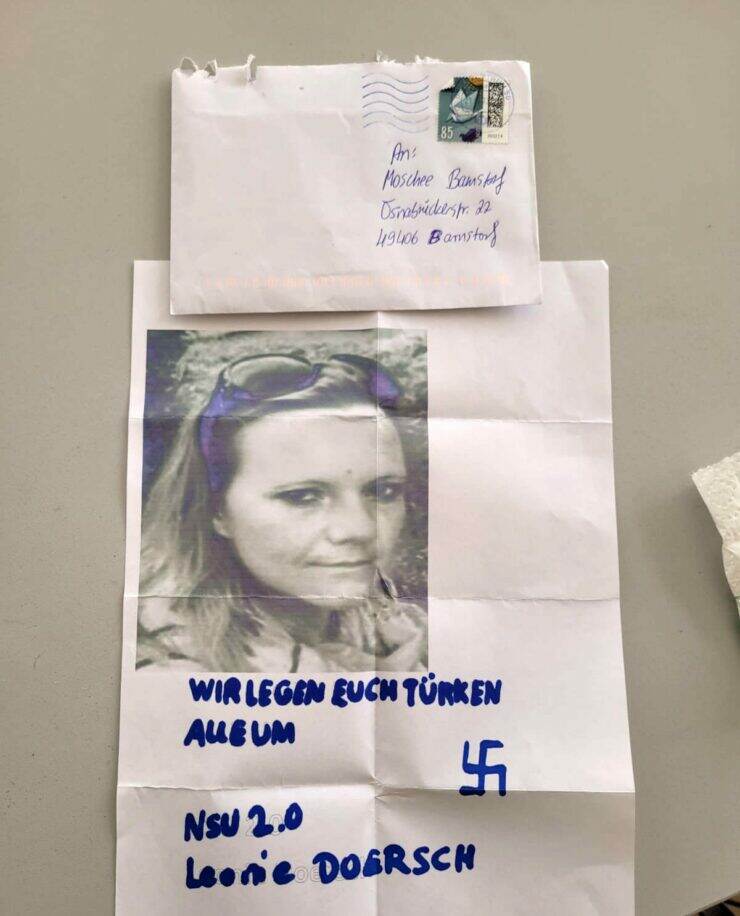 85
An:
Moschee Barnstorf
Osnabrückerstr. 22
49406 Barnstorf
WIR LEGEN EUCH TÜRKEN
ALLE UM
NSU 2.0
Leonie DOERSCH